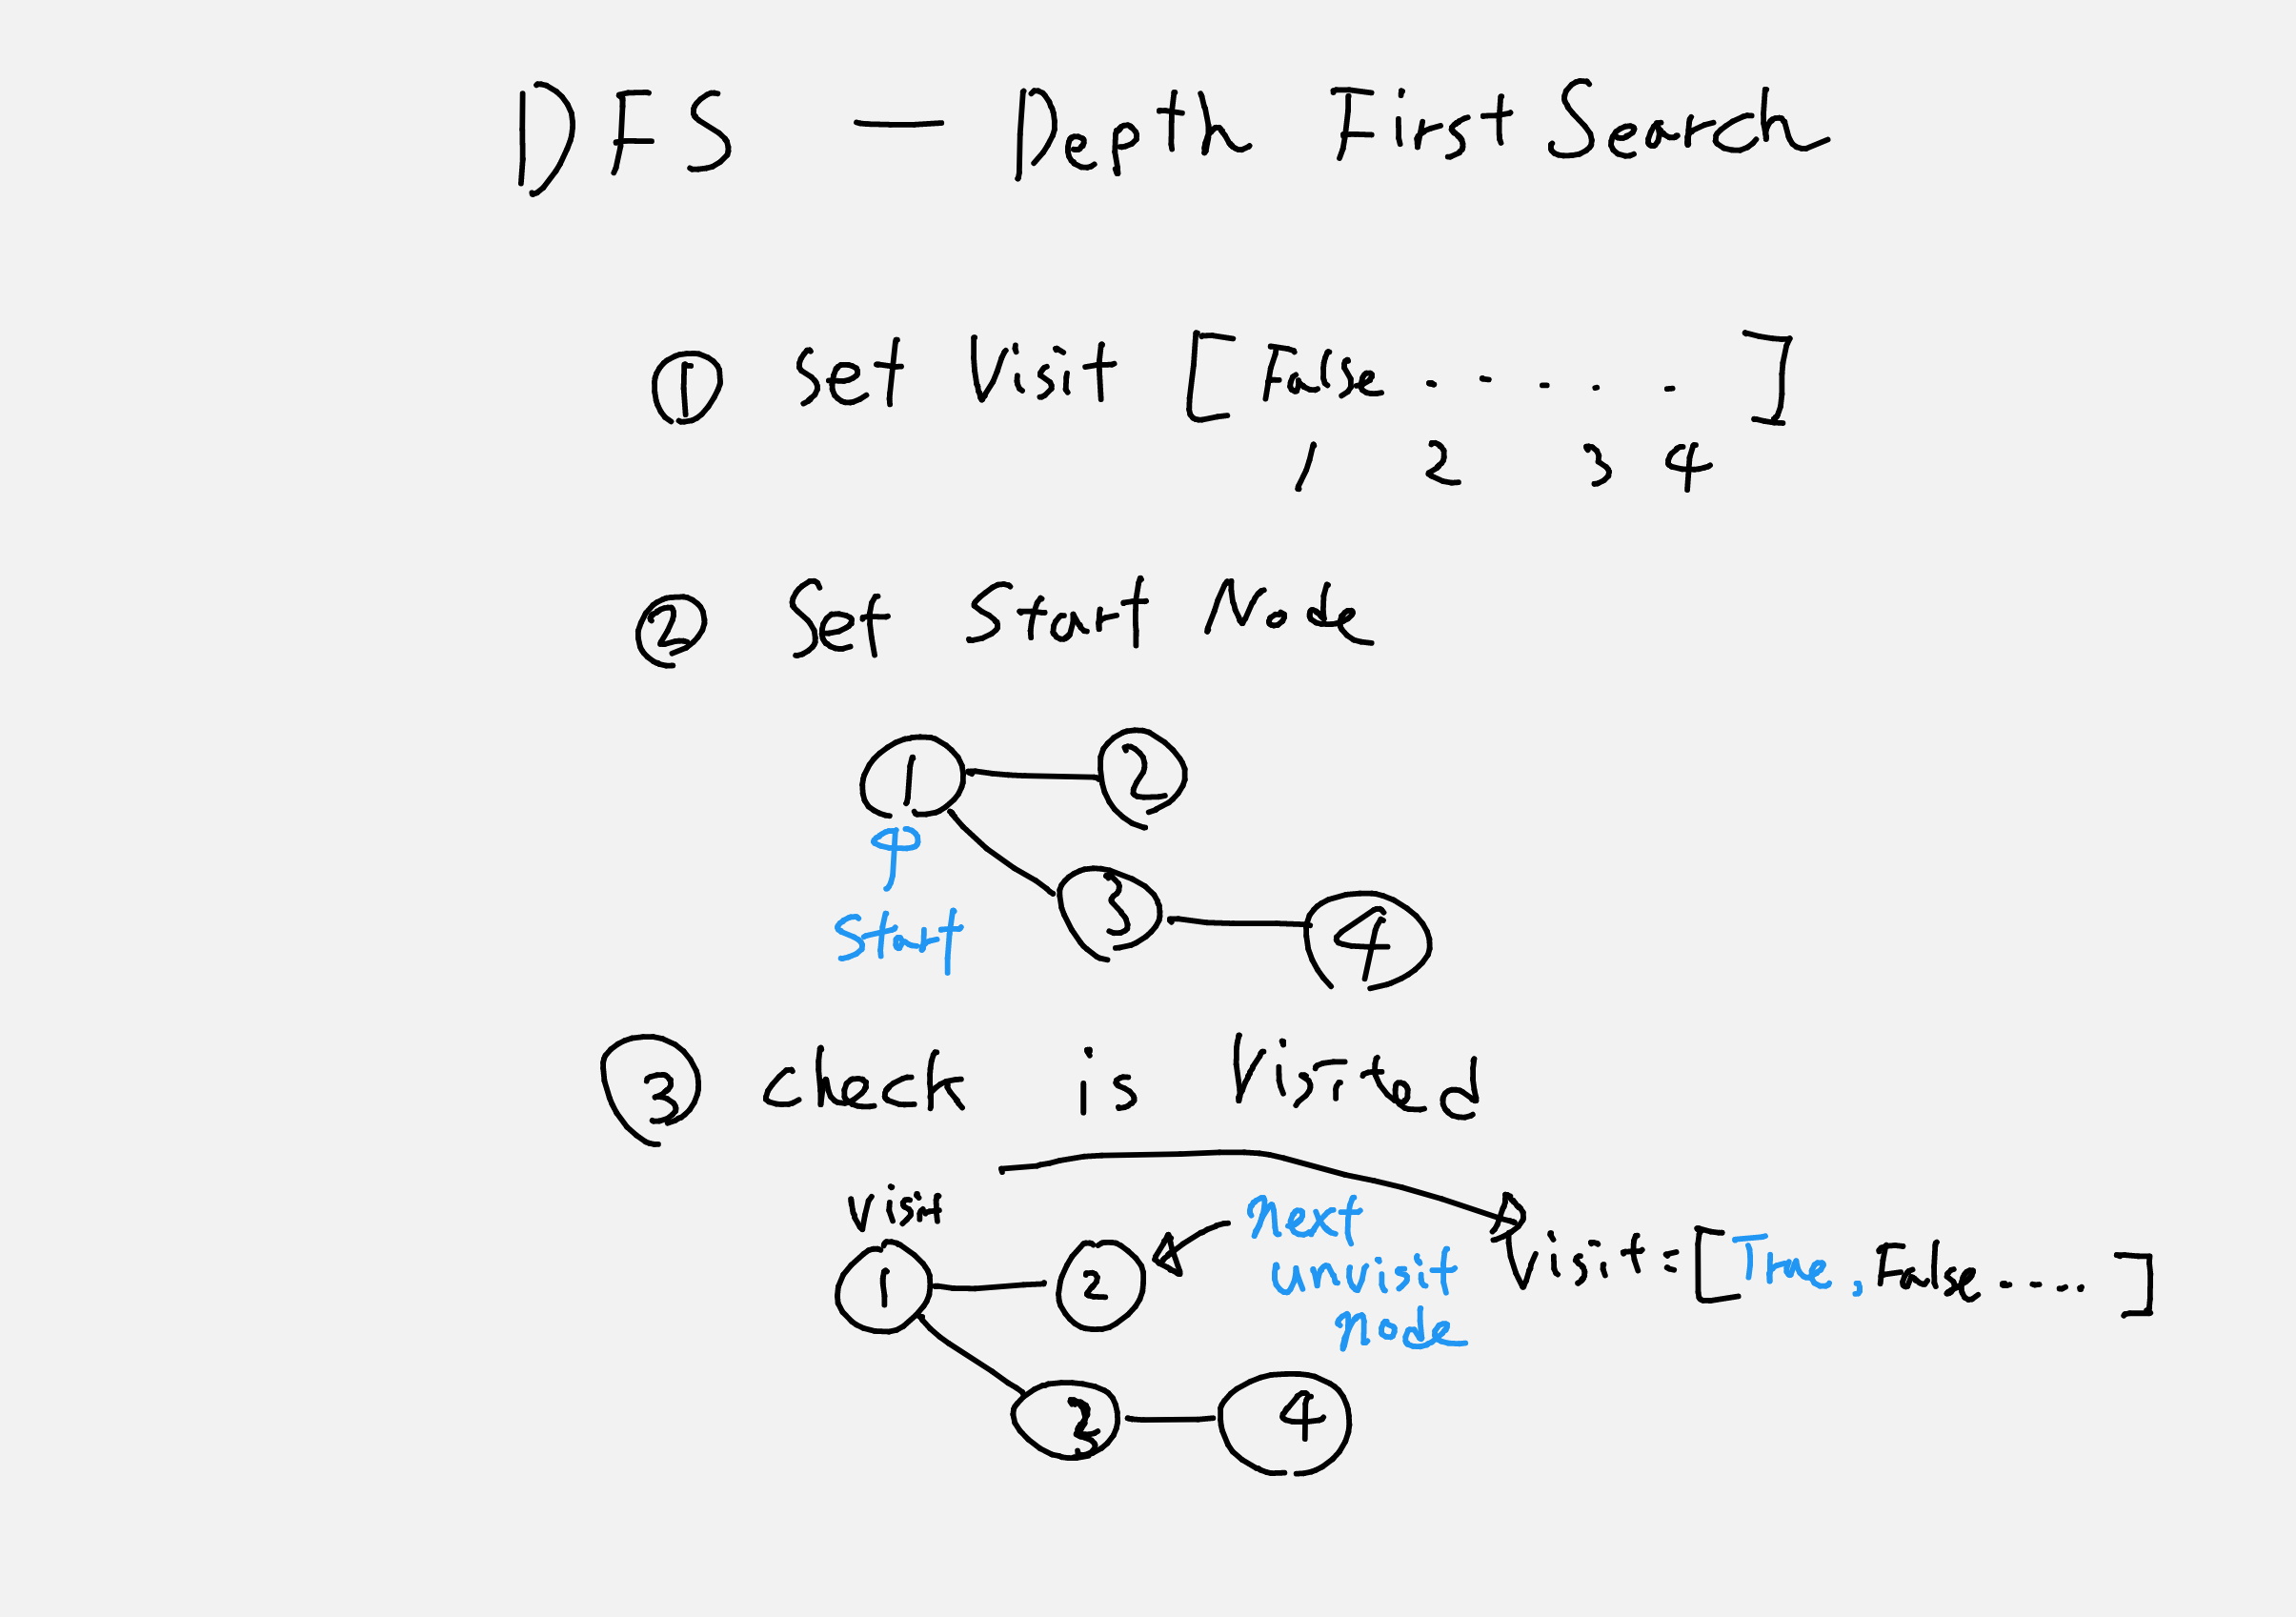 DFS — Depth First Search
① set Visit [False . . . . . ]
1 2 3 4
② Set Start Node
1 2
3 4
Start
③ check is Visited
visit
next
unvisit
node
Visit=[True, False ..... ]
1 2
3 4